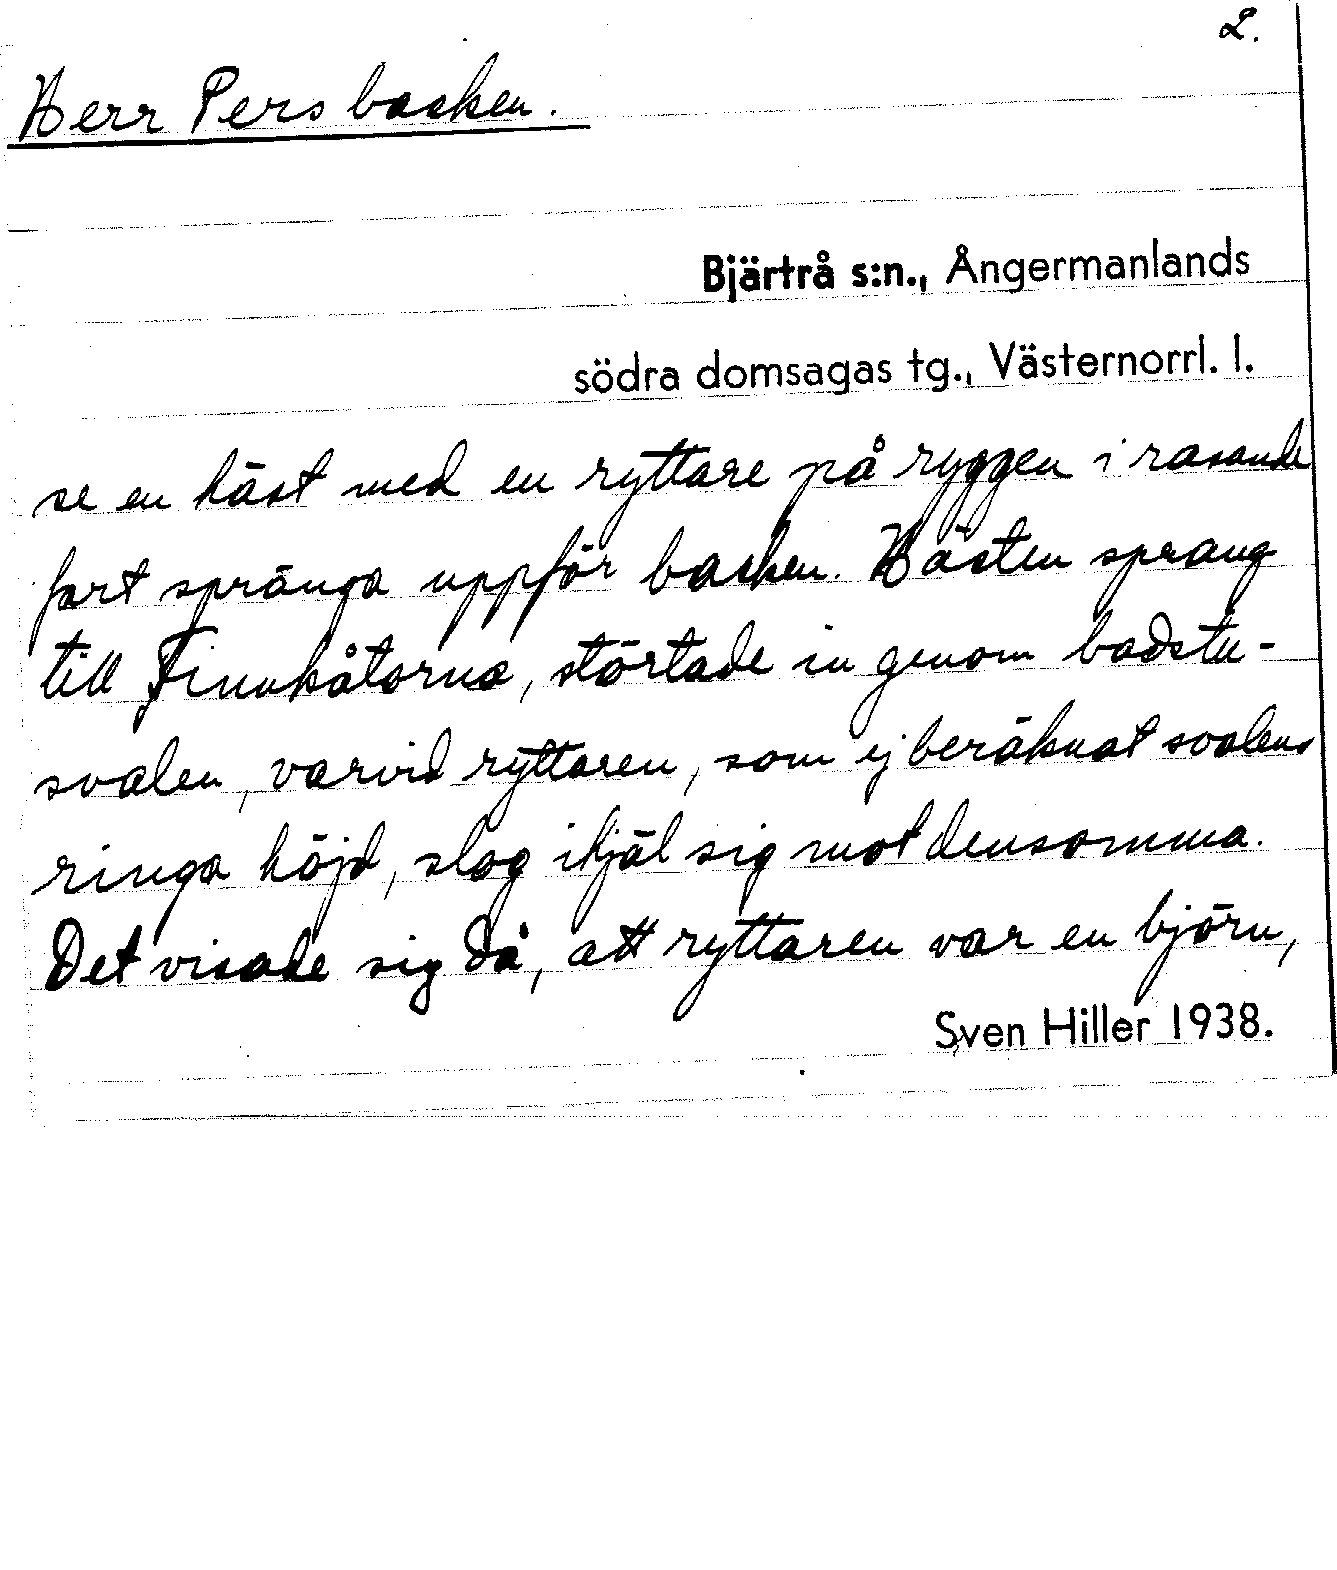 2.
Herr Pers backen.
Bjärtrå s:n., Ångermanlands
södra domsagas tg., Västernorrl. l.
se en häst med en ryttare på ryggen i rasande
fart spränga uppför backen. Hästen sprang
till Finnkåtorna, störtade in genom badstu-
svalen, varvid ryttaren, som ej beräknat svalens
ringa höjd, slog ihjäl sig mot densamma.
Det visade sig då, att ryttaren var en björn,
Sven Hiller 1938.